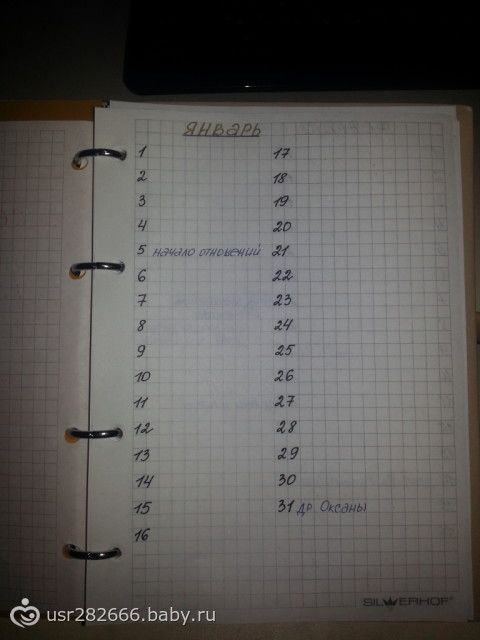 ЯНВАРЬ
1
2
3
4
5 начало отношений
6
7
8
9
10
11
12
13
14
15
16
17
18
19
20
21
22
23
24
25
26
27
28
29
30
31 др. Оксаны
SILWERHOF®
usr282666.baby.ru